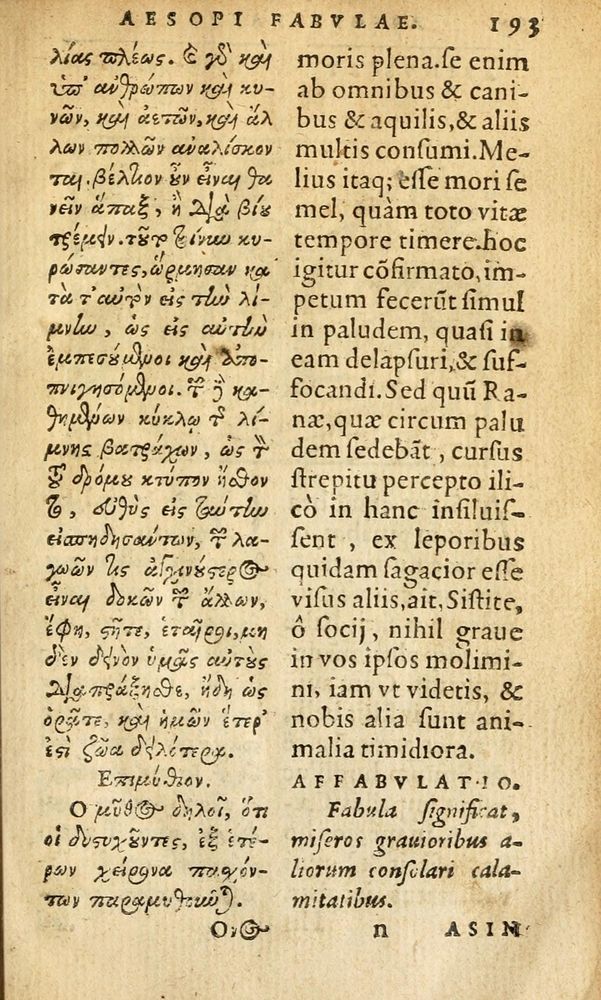 AESOPI FABVLAE. 193
λίας πλέως. καὶ γὸ καὶ
ὑπ' ἀνθρώπων καὶ κυ-
νῶν, καὶ ἀετῶν, καὶ ἄλ
λων πολλῶν ἀναλίσκον
ται. βέλτιον οὖν εἶναι θα
νεῖν ἅπαξ, ἢ διὰ βίου
τρέμειν. τοῦτο τοίνυν κυ-
ρώσαντες, ὥρμησαν κα
τὰ τ' αυτὸν εἰς τὴν λί-
μνην, ὡς εἰς αὐτὴν
ἐμπεσούμενοι καὶ ἀπο-
πνιγησόμενοι. τῶν δὲ κα-
θημένων κύκλῳ τῆς λί-
μνης βατράχων, ὡς τὸν
τοῦ δρόμου κτύπον ᾔσθον
το, εὐθὺς εἰς ταύτην
εἰσπηδησάντων, τῶν λα-
γωῶν τις ἀγχινούστερος
εἶναι δοκῶν τῶν ἄλλων,
ἔφη, στῆτε, ἑταῖροι, μη
δὲν δεινὸν ὑμᾶς αὐτοὺς
διαπράξησθε, ἤδη ὡς
ὁρᾶτε, καὶ ἡμῶν ἕτερ'
ἐστὶ ζῶα δειλότερα.
Επιμύθιον.
Ο μῦθος δηλοῖ, ὅτι
οἱ δυστυχοῦντες, ἐξ ἑτέ-
ρων χείρονα παθόν-
των παραμυθοῦνται.
Ονος
moris plena. se enim
ab omnibus & cani-
bus & aquilis, & aliis
multis consumi. Me-
lius itaq; esse mori se
mel, quàm toto vitæ
tempore timere. hoc
igitur cõfirmato, im-
petum fecerũt simul
in paludem, quasi in
eam delapsuri, & suf-
focandi. Sed quũ Ra-
næ, quæ circum palu
dem sedebãt, cursus
strepitu percepto ili-
cò in hanc insiluis-
sent, ex leporibus
quidam sagacior esse
visus aliis, ait, Sistite,
ô socij, nihil graue
in vos ipsos molimi-
ni, iam vt videtis, &
nobis alia sunt ani-
malia timidiora.
AFFABVLATIO.
Fabula significat,
miseros grauioribus a-
liorum consolari cala-
mitatibus.
n ASIN